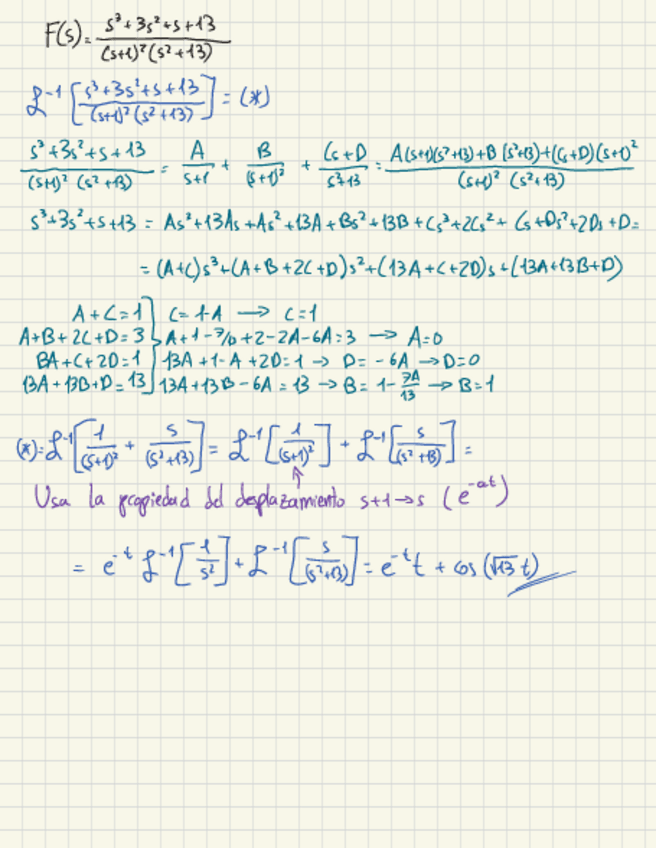 F(s) = (s³+3s²+s+13)/((s+1)²(s²+13))
ℒ⁻¹[(s³+3s²+s+13)/((s+1)²(s²+13))] = (*)
(s³+3s²+s+13)/((s+1)²(s²+13)) = A/(s+1) + B/(s+1)² + (Cs+D)/(s²+13) = (A(s+1)(s²+13)+B(s²+13)+(Cs+D)(s+1)²)/((s+1)²(s²+13))
s³+3s²+s+13 = As³+13As+As²+13A+Bs²+13B+Cs³+2Cs²+Cs+Ds²+2Ds+D=
= (A+C)s³+(A+B+2C+D)s²+(13A+C+2D)s+(13A+13B+D)
A+C=1 } C=1-A → C=1
A+B+2C+D=3 } A+1-7/6+2-2A-6A=3 → A=0
BA+C+2D=1 } 13A+1-A+2D=1 → D=-6A → D=0
13A+13B+D=13 } 13A+13B-6A=13 → B=1-7A/13 → B=1
(*)=ℒ⁻¹[1/(s+1)² + s/(s²+13)] = ℒ⁻¹[1/(s+1)²] + ℒ⁻¹[s/(s²+13)] =
Usa la propiedad del desplazamiento s+1→s (e^-at)
= e^-t ℒ⁻¹[1/s²] + ℒ⁻¹[s/(s²+13)] = e^-t t + cos(√13 t)